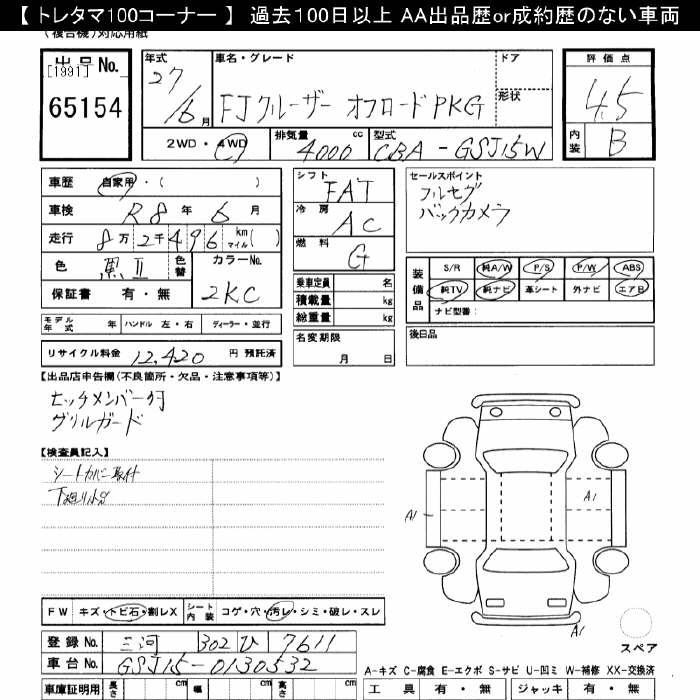 【 トレタマ100コーナー 】 過去100日以上 AA出品歴or成約歴のない車両
(複合機)対応用紙
出品 No.
[1991]
65154
年式 27/6月
車名・グレード ドア
FJクルーザー オフロードPKG 形状
2WD・4WD 排気量 4000 cc 型式 CBA-GSJ15W
評価点
4.5
内装 B
車歴 自家用・( )
車検 R8年 6月
走行 8万2千496 km マイル( )
色 黒II 色替 カラーNo.
保証書 有・無 2KC
モデル年式 年 ハンドル 左・右 ディーラー・並行
リサイクル料金 12,420 円 預託済
シフト FAT
冷房 AC
燃料 G
乗車定員 名
積載量 kg
総重量 kg
名変期限
月 日
セールスポイント
フルセグ
バックカメラ
装備品 S/R 純A/W P/S P/W ABS
純TV 純ナビ 革シート 外ナビ エアB
ナビ型番:
後日品
【出品店申告欄(不良箇所・欠品・注意事項等)】
ヒッチメンバー付
グリルガード
【検査員記入】
シートカバー取付
下廻り小サビ
A1
A1
A1
スペア
FW キズ・トビ石・割レX シート内装 コゲ・穴・汚レ・シミ・破レ・スレ
登録 No. 三河 302 ひ 7611
車台 No. GSJ15-0130532
車庫証明用 長さ cm 幅 cm 高さ cm
A-キズ C-腐食 E-エクボ S-サビ U-凹ミ W-補修 XX-交換済
工具 有・無 ジャッキ 有・無